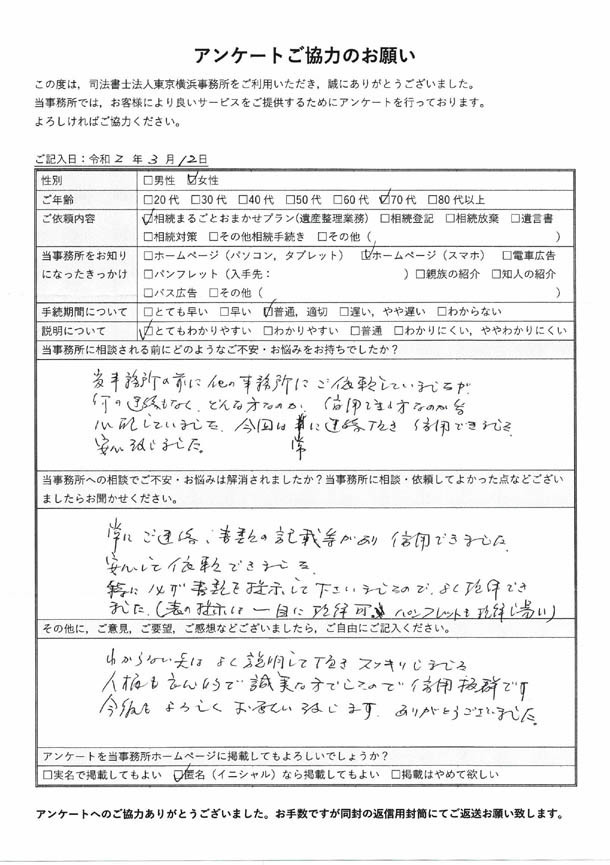 アンケートご協力のお願い
この度は，司法書士法人東京横浜事務所をご利用いただき，誠にありがとうございました。
当事務所では，お客様により良いサービスをご提供するためにアンケートを行っております。
よろしければご協力ください。
ご記入日：令和 2 年 3 月 12 日
性別 □男性 ☑女性
ご年齢 □20代 □30代 □40代 □50代 □60代 ☑70代 □80代以上
ご依頼内容 ☑相続まるごとおまかせプラン(遺産整理業務) □相続登記 □相続放棄 □遺言書
□相続対策 □その他相続手続き □その他（ ）
当事務所をお知り □ホームページ（パソコン，タブレット） ☑ホームページ（スマホ） □電車広告
になったきっかけ □パンフレット（入手先： ）□親族の紹介 □知人の紹介
□バス広告 □その他（ ）
手続期間について □とても早い □早い ☑普通，適切 □遅い，やや遅い □わからない
説明について ☑とてもわかりやすい □わかりやすい □普通 □わかりにくい，ややわかりにくい
当事務所に相談される前にどのようなご不安・お悩みをお持ちでしたか？
当事務所の前に他の事務所にご依頼していましたが
何の連絡もなく、どんな方なのか、信用できる方なのか等
心配していました。今回は常に連絡頂き 信用できました
安心致しました。
当事務所への相談でご不安・お悩みは解消されましたか？当事務所に相談・依頼してよかった点などござい
ましたらお聞かせください。
常にご連絡、書類の記載等があり 信用できました
安心して依頼できました
に必ず書類を提示して下さいましたので、よく理解でき
ました。(表の提示は一目に理解可 パンフレットも理解し易い)
その他に，ご意見，ご要望，ご感想などございましたら，ご自由にご記入ください。
わからない点はよく説明して頂きスッキリしました
人柄も 誠実な方でしたので信用抜群です
今後もよろしくお願い致します. ありがとうございました。
アンケートを当事務所ホームページに掲載してもよろしいでしょうか？
□実名で掲載してもよい ☑匿名（イニシャル）なら掲載してもよい □掲載はやめて欲しい
アンケートへのご協力ありがとうございました。お手数ですが同封の返信用封筒にてご返送お願い致します。